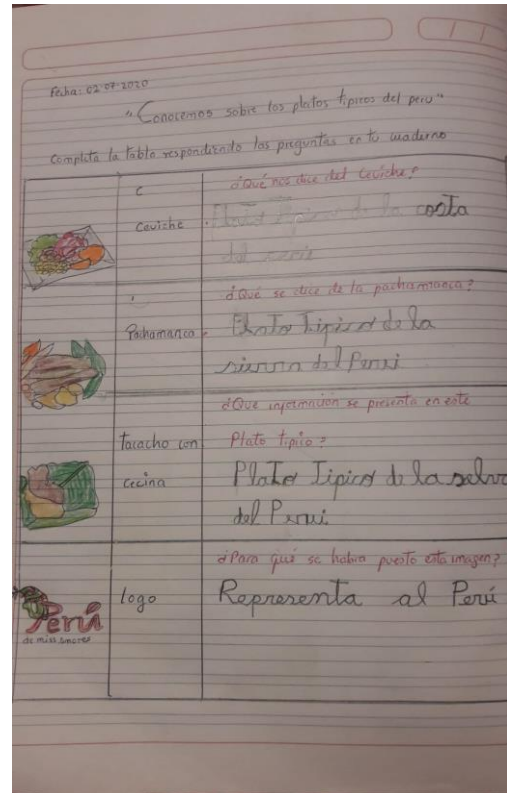 Fecha: 02-07-2020
"Conocemos sobre los platos típicos del perú"
Completa la tabla respondiendo las preguntas en tu cuaderno
C
Ceviche
¿Qué nos dice del Ceviche?
Plato Típico de la costa
del
Pachamanca
¿Qué se dice de la pachamanca?
Plato Típico de la
sierra del Perú
tacacho con
cecina
¿Qué información se presenta en este
Plato típico?
Plato Típico de la selva
del Perú
Perú
de mis
logo
¿Para qué se habrá puesto esta imagen?
Representa al Perú